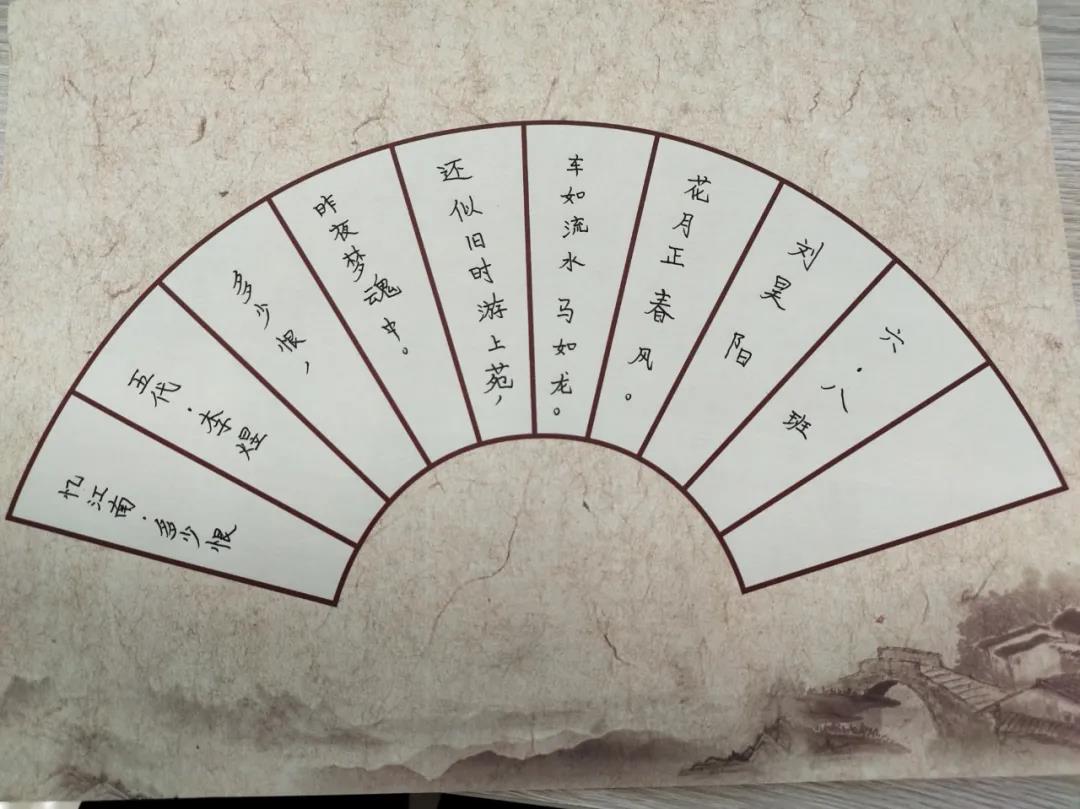 忆江南·多少恨
五代·李煜
多少恨，
昨夜梦魂中。
还似旧时游上苑，
车如流水马如龙。
花月正春风。
刘昊阳
六·八班